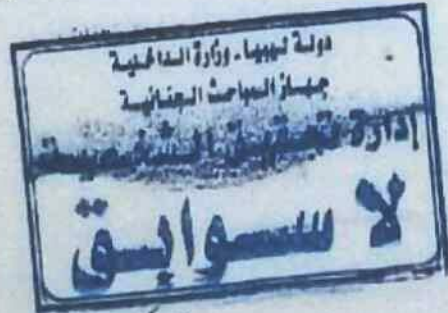 دولة ليبيا - وزارة الداخلية
جهاز المباحث الجنائية
إدارة تحقيق الشخصية
لا سوابق